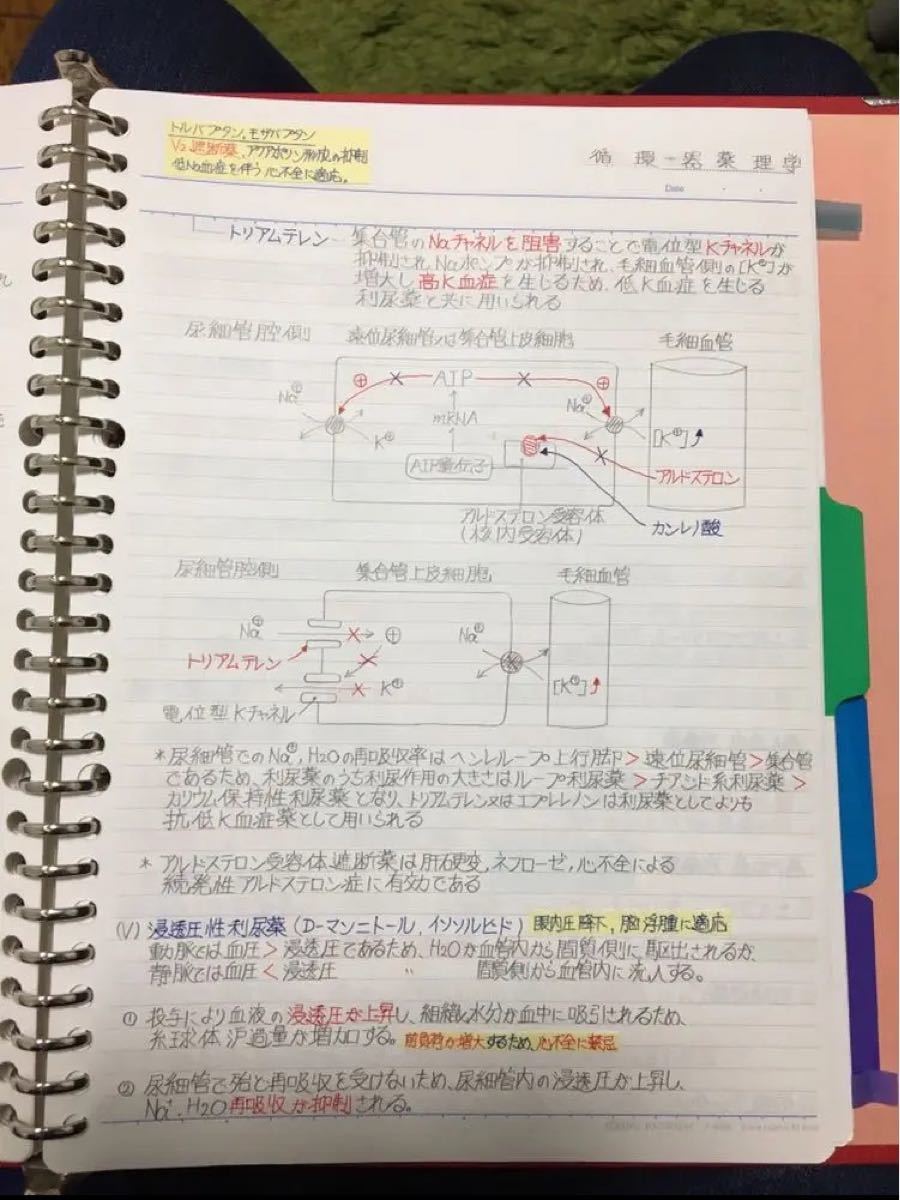 トルバプタン、モザバプタン
V₂遮断薬、アクアポリン形成の抑制
低Na血症を伴う心不全に適応。
循環器薬理学
Date
トリアムテレン - 集合管のNaチャネルを阻害することで電位型Kチャネルが
抑制されNaポンプが抑制され、毛細血管側の[K⊕]が
増大し高K血症を生じるため、低K血症を生じる
利尿薬と共に用いられる
尿細管腔側 遠位尿細管又は集合管上皮細胞 毛細血管
⊕ AIP ⊕
Na⊕ mRNA Na⊕
K⊕ [K⊕]
AIP遺伝子 アルドステロン
アルドステロン受容体 カンレノ酸
(核内受容体)
尿細管腔側 集合管上皮細胞 毛細血管
Na⊕ ⊕ Na⊕
トリアムテレン
K⊕ [K⊕]
電位型Kチャネル
*尿細管でのNa⊕, H2Oの再吸収率はヘンレループ上行脚>遠位尿細管>集合管
であるため、利尿薬のうち利尿作用の大きさはループ利尿薬>チアジド系利尿薬>
カリウム保持性利尿薬となり、トリアムテレン又はエプレレノンは利尿薬としてよりも
抗低K血症薬として用いられる
*アルドステロン受容体遮断薬は肝硬変、ネフローゼ、心不全による
続発性アルドステロン症に有効である
(V) 浸透圧性利尿薬(D-マンニトール、イソソルビド) 眼内圧降下、脳浮腫に適応
動脈では血圧>浸透圧であるため、H2Oが血管内から間質側に駆出されるが、
静脈では血圧<浸透圧 〃 間質側から血管内に流入する。
① 投与により血液の浸透圧が上昇し、組織水分が血中に吸引されるため、
糸球体沪過量が増加する。前負荷が増大するため、心不全に禁忌
② 尿細管で殆ど再吸収を受けないため、尿細管内の浸透圧が上昇し、
Na⁺、H2O再吸収が抑制される。